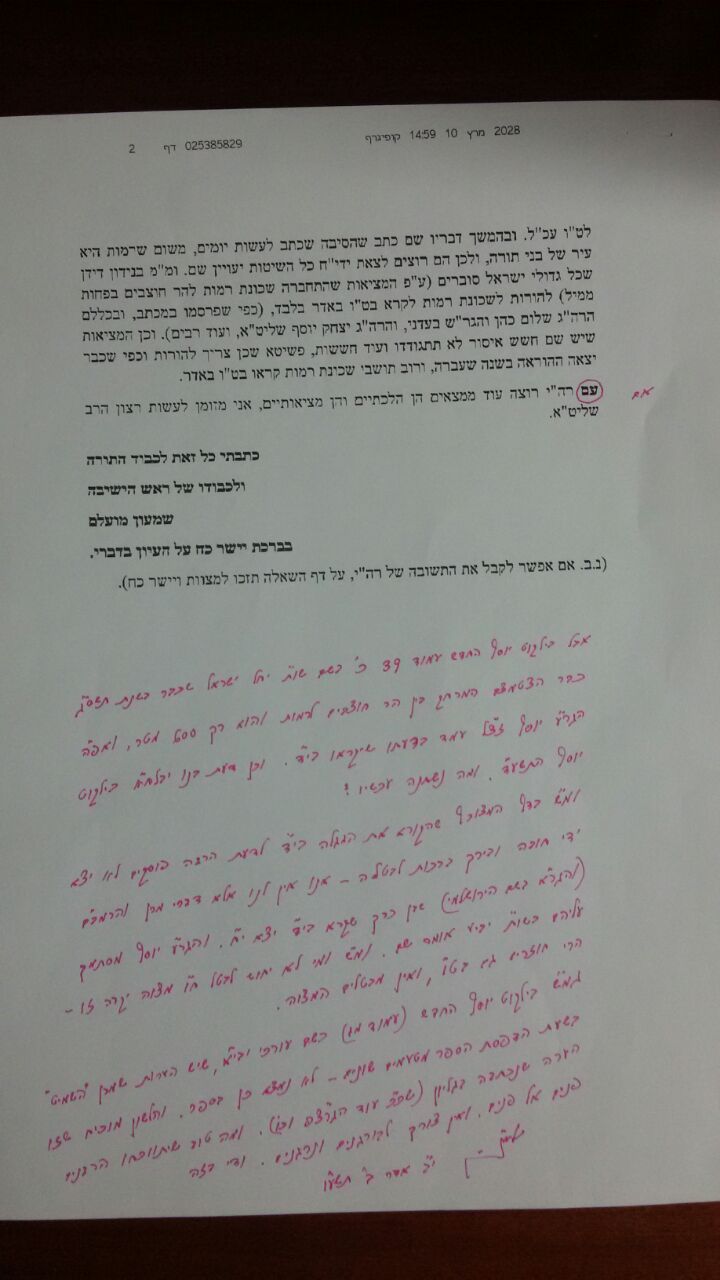 2028 מרץ 10 14:59 קופיגרף 025385829 דף 2
לט"ו עכ"ל. ובהמשך דבריו שם כתב שהסיבה שכתב לעשות יומים, משום שרמות היא
עיר של בני תורה, ולכן הם רוצים לצאת ידי"ח כל השיטות יעויין שם. ומ"מ בנידון דידן
שכל גדולי ישראל סוברים (ע"פ המציאות שהתחברה שכונת רמות להר חוצבים בפחות
ממיל) להורות לשכונת רמות לקרא בט"ו באדר בלבד, (כפי שפרסמו במכתב, ובכללם
הרה"ג שלום כהן והגר"ש בעדני, והרה"ג יצחק יוסף שליט"א, ועוד רבים). וכן המציאות
שיש שם חשש איסור לא תתגודדו ועוד חששות, פשיטא שכן צריך להורות וכפי שכבר
יצאה ההוראה בשנה שעברה, ורוב תושבי שכינת רמות קראו בט"ו באדר.
עם רה"י רוצה עוד ממצאים הן הלכתיים והן מציאותיים, אני מזומן לעשות רצון הרב
אם
שליט"א.
כתבתי כל זאת לכביד התורה
ולכבודו של ראש הישיבה
שמעון מועלם
בברכת יישר כח על העיון בדברי.
(נ.ב. אם אפשר לקבל את התשובה של רה"י, על דף השאלה תזכו למצוות ויישר כח).
אבל בילקוט יוסף החדש עמוד 39 כ' בשם שו"ת יחל ישראל שכבר בשנת תשס"ג
כבר הצטמצם המרחק בין הר חוצבים לרמות והוא רק 600 מטר, ואפ"ה
הגר"ע יוסף זצ"ל עמד בדעתו שיקראו בי"ד. וכן דעת בנו יבלח"א בילקוט
יוסף התשע"ד. ומה נשתנה עכשיו?
ומ"ש בדף המצורף שהקורא את המגלה בי"ד לדעת הרבה פוסקים לא יצא
ידי חובה ובירך ברכות לבטלה - אנו אין לנו אלא דברי מרן והרמב"ם
(והגר"א בשם הירושלמי) שבן כרך שקרא בי"ד יצא י"ח. והגר"ע יוסף מסתמך
עליהם בשו"ת יביע אומר שם. ומ"ש ומי לא יחוש לבטל ח"ו מצוה יקרה זו -
הרי חוזרים גם בט"ו, ואין מבטלים המצוה.
גמ"ש בילקוט יוסף החדש (עמוד מג) בשם עורכי יבי"א, שיש הערות שמרן "השמיט"
בשעת הדפסת הספר מטעמים שונים - לא נמצא כן בספר. והלשון מוכיח שזו
הערה שנכתבה בגליון (שכ"כ עוד הגר"צ וכו'). ומה טוב שיתווכחו הרבנים
פנים אל פנים. ואין צורך לבורגנים ונרגנים. ודי בזה
י"ב אדר ב' תשע"ו